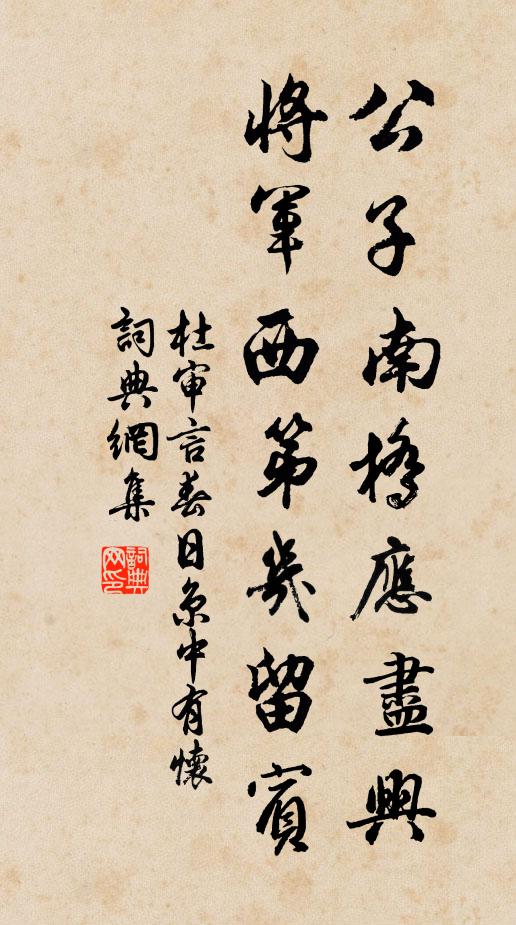 公子南橋應盡興
將軍西第幾留賓
杜审言春日京中有懷
詞典網集
詞典
网印